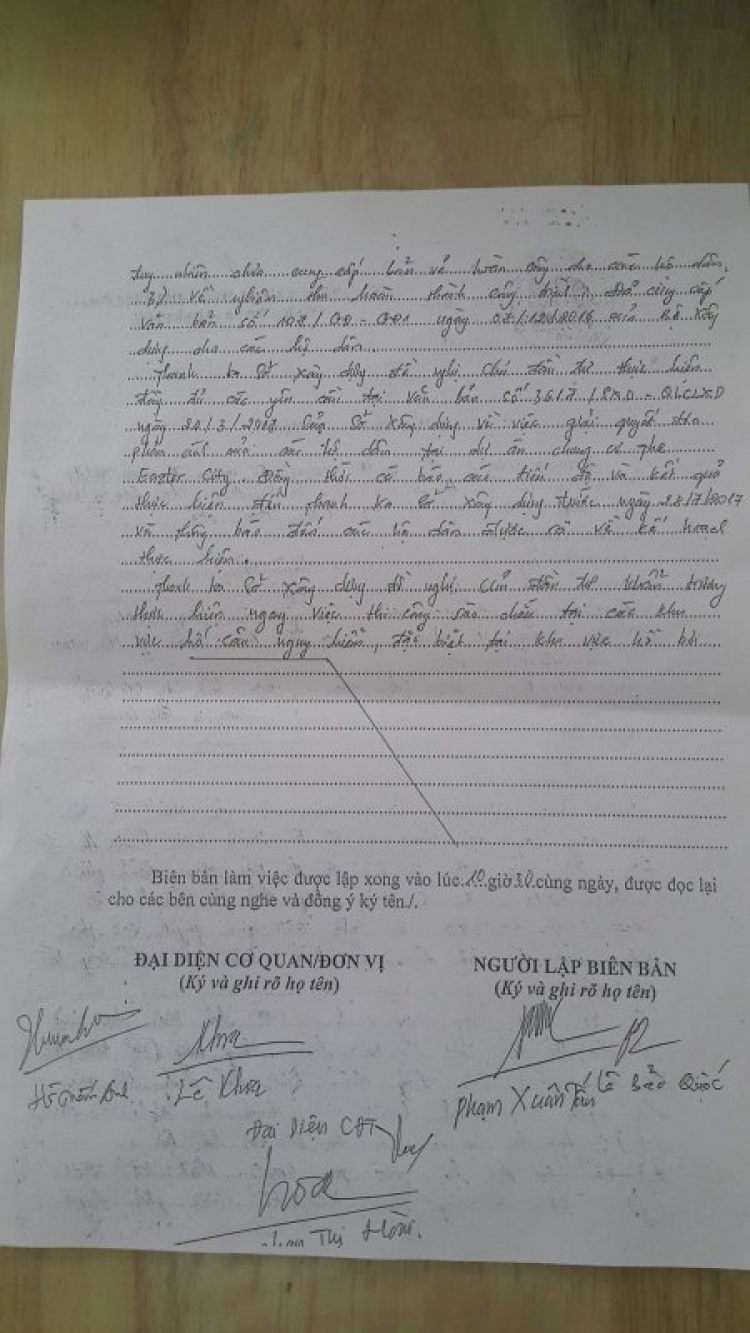 tuy nhiên chưa cung cấp bản vẽ hoàn công cho các hộ dân.
3/ Về nghiệm thu hoàn thành công trình: Đã cung cấp
văn bản số ngày 07/12/2016 của Bộ Xây
dựng cho các hộ dân.
Thanh tra Sở Xây dựng đề nghị Chủ đầu tư thực hiện
đầy đủ các yêu cầu tại văn bản số 3617/SXD-QLCLXD
ngày của Sở Xây dựng về việc giải quyết đơn
phản ánh của các hộ dân tại dự án chung cư
City. Đồng thời có báo cáo tiến độ và kết quả
thực hiện đến Thanh tra Sở Xây dựng trước ngày 28/7/2017
và thông báo đến các hộ dân được rõ về kế hoạch
thực hiện.
Thanh tra Sở Xây dựng đề nghị Chủ đầu tư khẩn trương
thực hiện ngay việc thi công rào chắn tại các khu
vực nguy hiểm, đặc biệt tại khu vực hồ bơi
Biên bản làm việc được lập xong vào lúc 10 giờ 30 cùng ngày, được đọc lại
cho các bên cùng nghe và đồng ý ký tên./.
ĐẠI DIỆN CƠ QUAN/ĐƠN VỊ
(Ký và ghi rõ họ tên)
NGƯỜI LẬP BIÊN BẢN
(Ký và ghi rõ họ tên)
Khoa
Lê Khoa
Phạm Xuân Tấn
Lê Bảo Quốc
Đại Diện CĐT
Thị